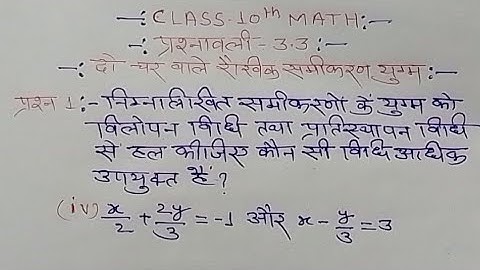 -:— CLASS-10th MATH:—
-:— प्रश्नावली-3.3—:—
-:— दो चर वाले रैखिक समीकरण युग्म —:—
प्रश्न 1:- निम्नलिखित समीकरणों के युग्म को
विलोपन विधि तथा प्रतिस्थापन विधि
से हल कीजिए कौन सी विधि अधिक
उपयुक्त है?
(iv) x/2 + 2y/3 = -1 और x - y/3 = 3